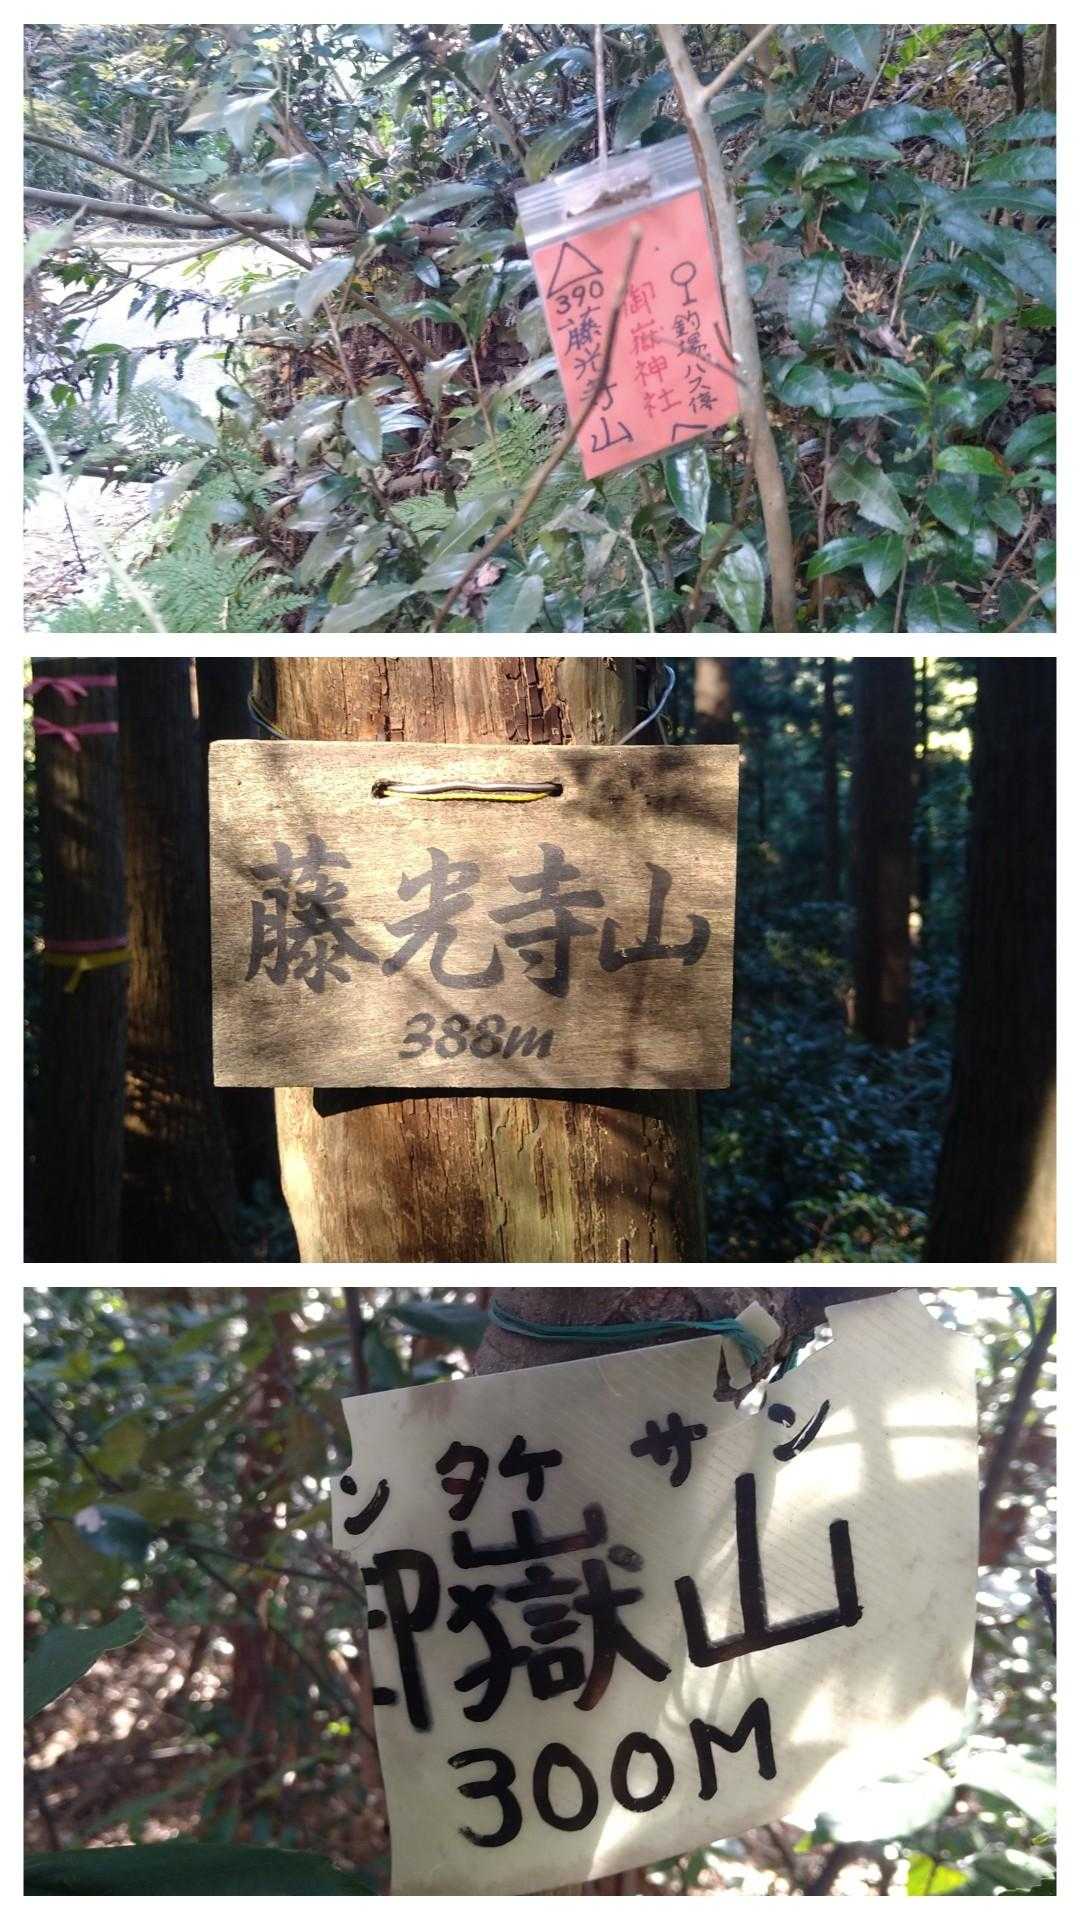 釣場バス停へ
御嶽神社
△390藤光寺山
藤光寺山
388m
ン タケ サン
御嶽山
300M